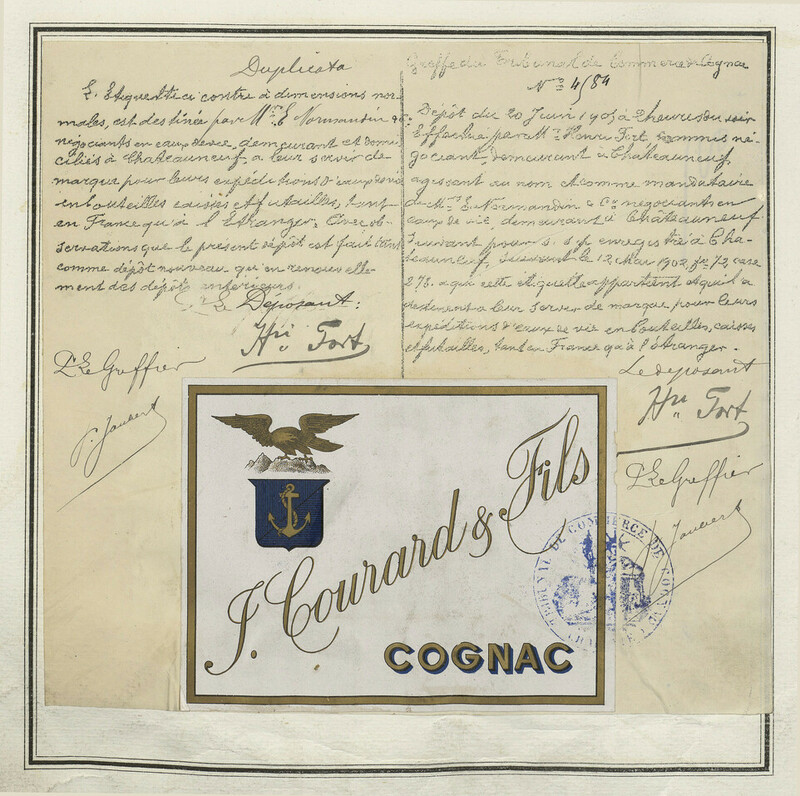 Duplicata
L'Etiquette ci contre à dimensions nor-
males, est destinée par Mrs E Normandin & Co
négociants en eaux de vie, demeurant et domi
ciliés à Chateauneuf, a leur servir de
marque pour leurs expéditions d'eaux de vie
en bouteilles caisses et futailles, tant
en France qu'à l'Etranger. Avec ob-
servations que le présent dépôt est fait tant
comme dépôt nouveau qu'en renouvelle-
ment des dépôts antérieurs.
Le Déposant:
Hri Fort
Pr Le Greffier
P. Jaubert
Greffe du Tribunal de Commerce de Cognac
No 4/84
Dépôt du 20 Juin 1905 à 2 heures du soir
Effectué par Mr Henri Fort commis né-
gociant, demeurant à Chateauneuf,
agissant au nom et comme mandataire
de Mrs E. Normandin & Co négociants en
eaux de vie, demeurant à Chateauneuf
Suivant pouvoir s. s. p. enregistré à Cha-
teauneuf, suivant le 12 Mai 1902, fo 72 case
276. a qui cette étiquette appartient et qu'il a
destinent a leur servir de marque pour leurs
expéditions d'eaux de vie en bouteilles, caisses
et futailles, tant en France qu'à l'étranger.
Le deposant
Hri Fort
Pr Le Greffier
Jaubert
J. Courard & Fils
COGNAC
TRIBUNAL DE COMMERCE DE COGNAC